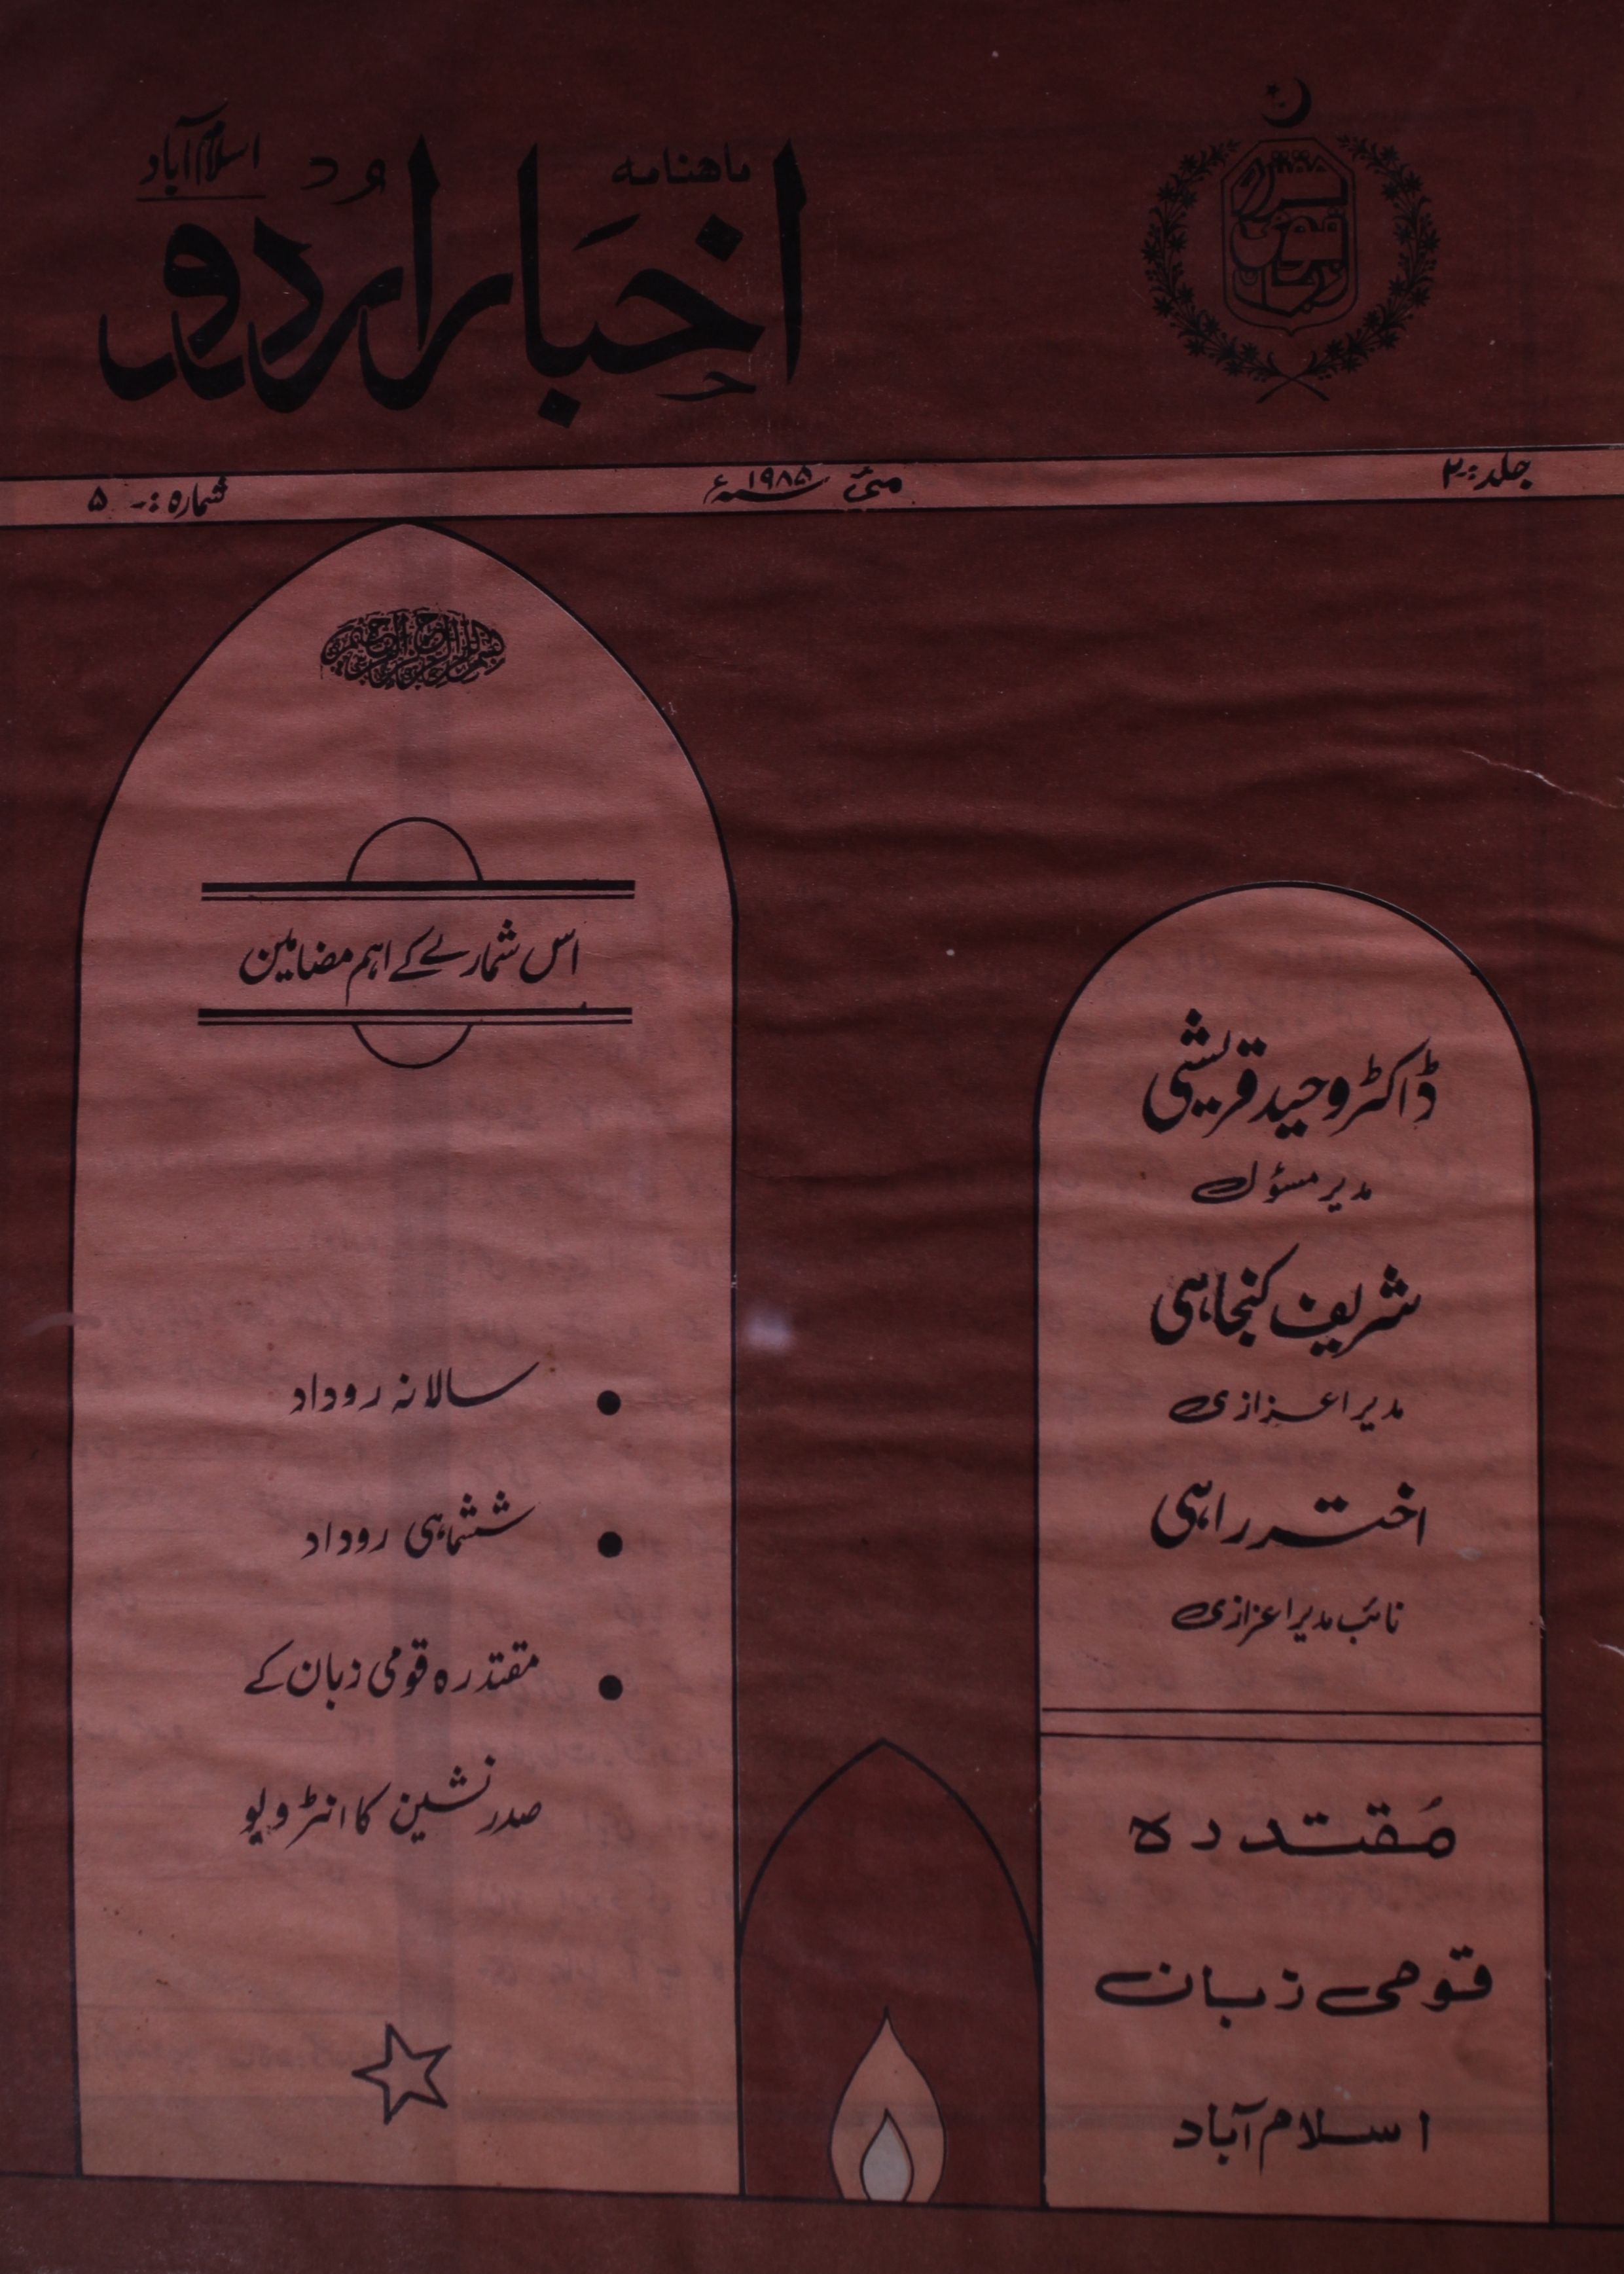 ماہنامہ
اخبار اردو
اسلام آباد
مقتدرہ قومی زبان
جلد :- ۲
مئی ۱۹۸۵ء
شمارہ :- ۵
بسم اللہ الرحمن الرحیم
اس شمارے کے اہم مضامین
سالانہ روداد
ششماہی روداد
مقتدرہ قومی زبان کے
صدر نشین کا انٹرویو
ڈاکٹر وحید قریشی
مدیر مسؤل
شریف کنجاہی
مدیر اعزازی
اختر راہی
نائب مدیر اعزازی
مُقتدرہ
قومی زبان
اسلام آباد